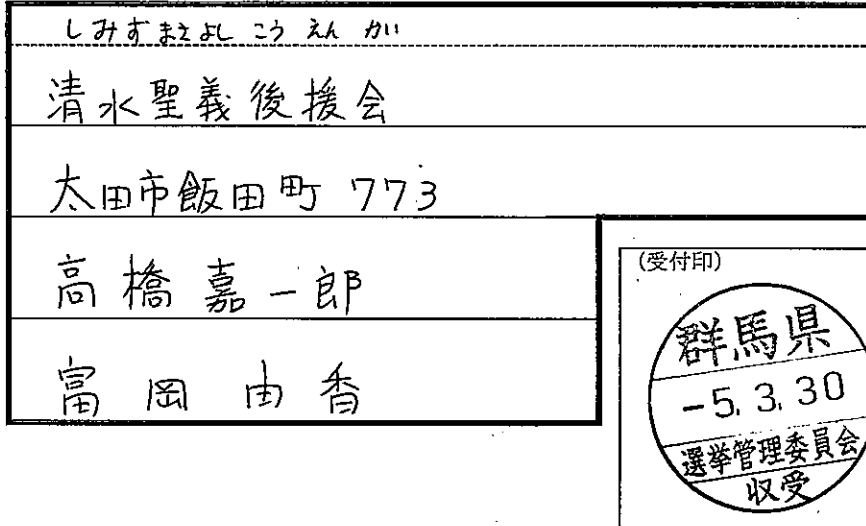 しみずまさよしこうえんかい
清水聖義後援会
太田市飯田町 773
高橋嘉一郎
富岡由香
(受付印)
群馬県
-5.3.30
選挙管理委員会
収受